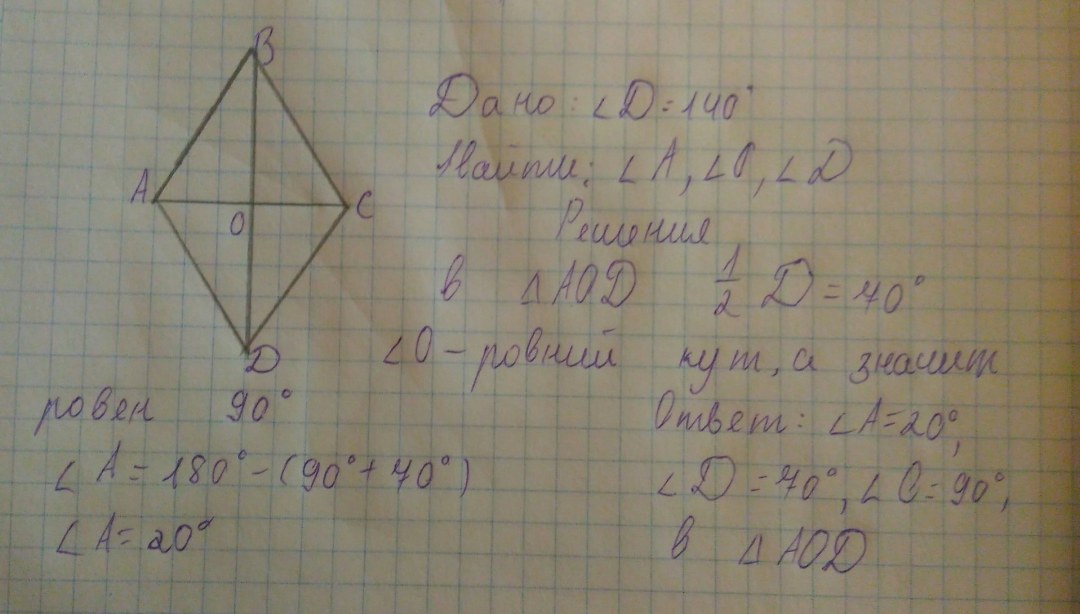 B
A
C
O
D
Дано: ∠D=140°
Найти: ∠A, ∠O, ∠D
Решения
в △AOD 1/2 D = 70°
∠O – ровний кут, а значит
ровен 90°
∠A = 180° – (90° + 70°)
∠A = 20°
Ответ: ∠A=20°,
∠D = 70°, ∠O = 90°,
в △AOD